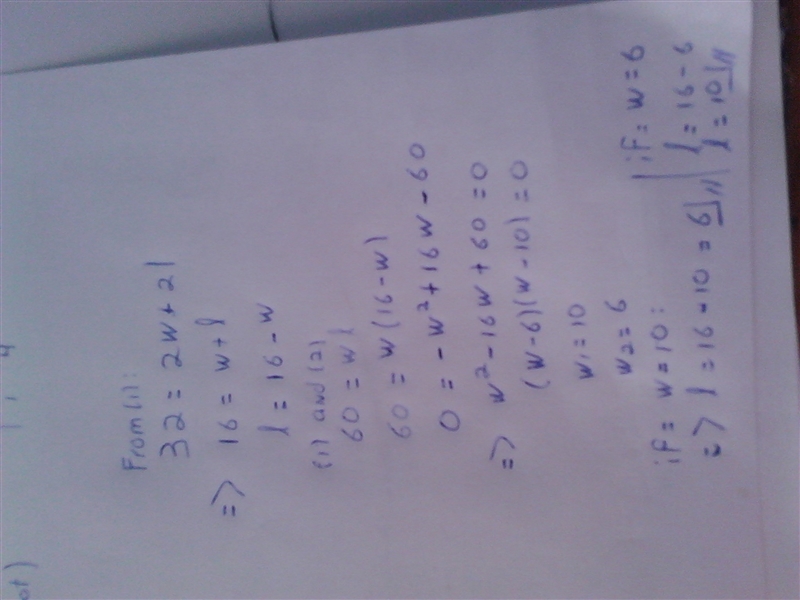 ot)
From (1):
32 = 2w + 2l
=> 16 = w + l
l = 16 - w
(1) and (2)
60 = w l
60 = w (16 - w)
0 = - w² + 16w - 60
=> w² - 16w + 60 = 0
(w - 6)(w - 10) = 0
w₁ = 10
w₂ = 6
if = w = 10:
=> l = 16 - 10 = 6
if = w = 6
l = 16 - 6
l = 10